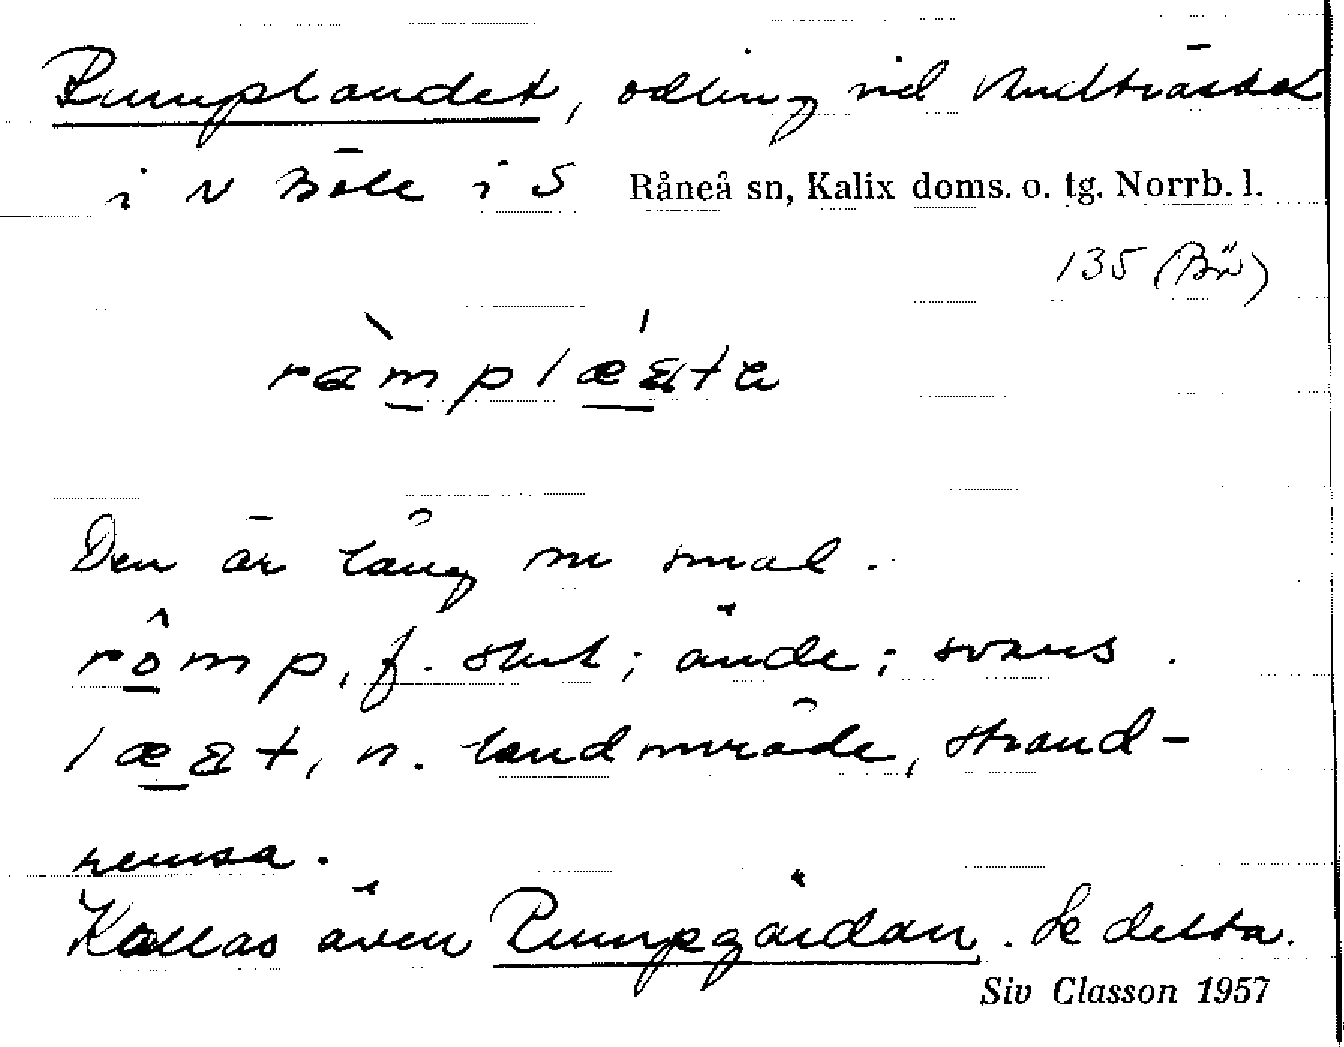 Rumplandet, odling vid Andträsket
i N Böle i S Råneå sn, Kalix doms. o. tg. Norrb. l.
135 (Bü)
Den är lång och smal.
rômp, f. slut; ände; svans.
n. landområde, strand-
remsa.
Kallas även Rumpgärdan. Se detta.
Siv Classon 1957